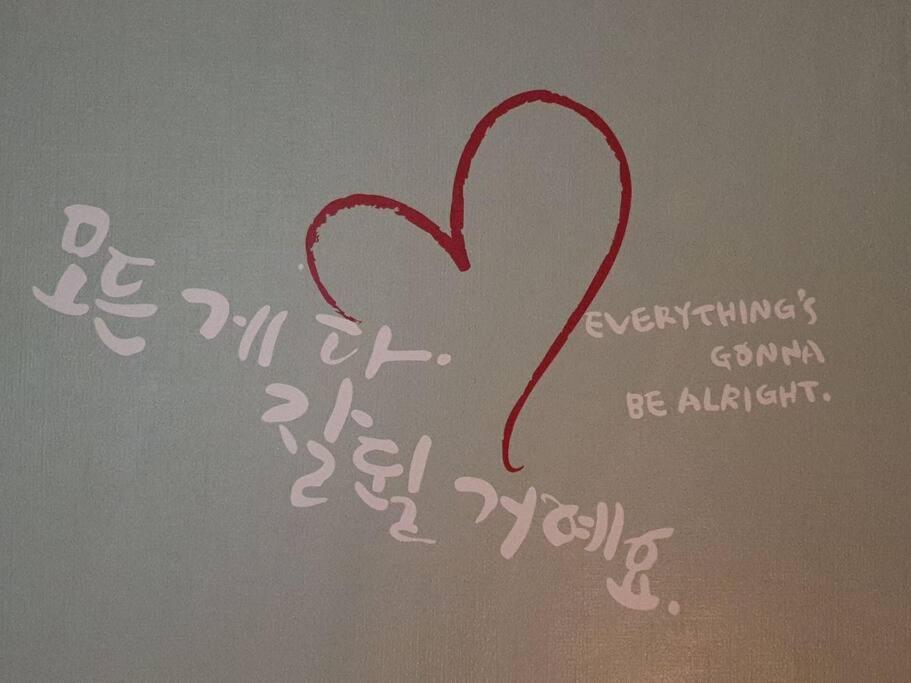 모든 게 다.
잘될 거예요.
EVERYTHING'S
GONNA
BE ALRIGHT.